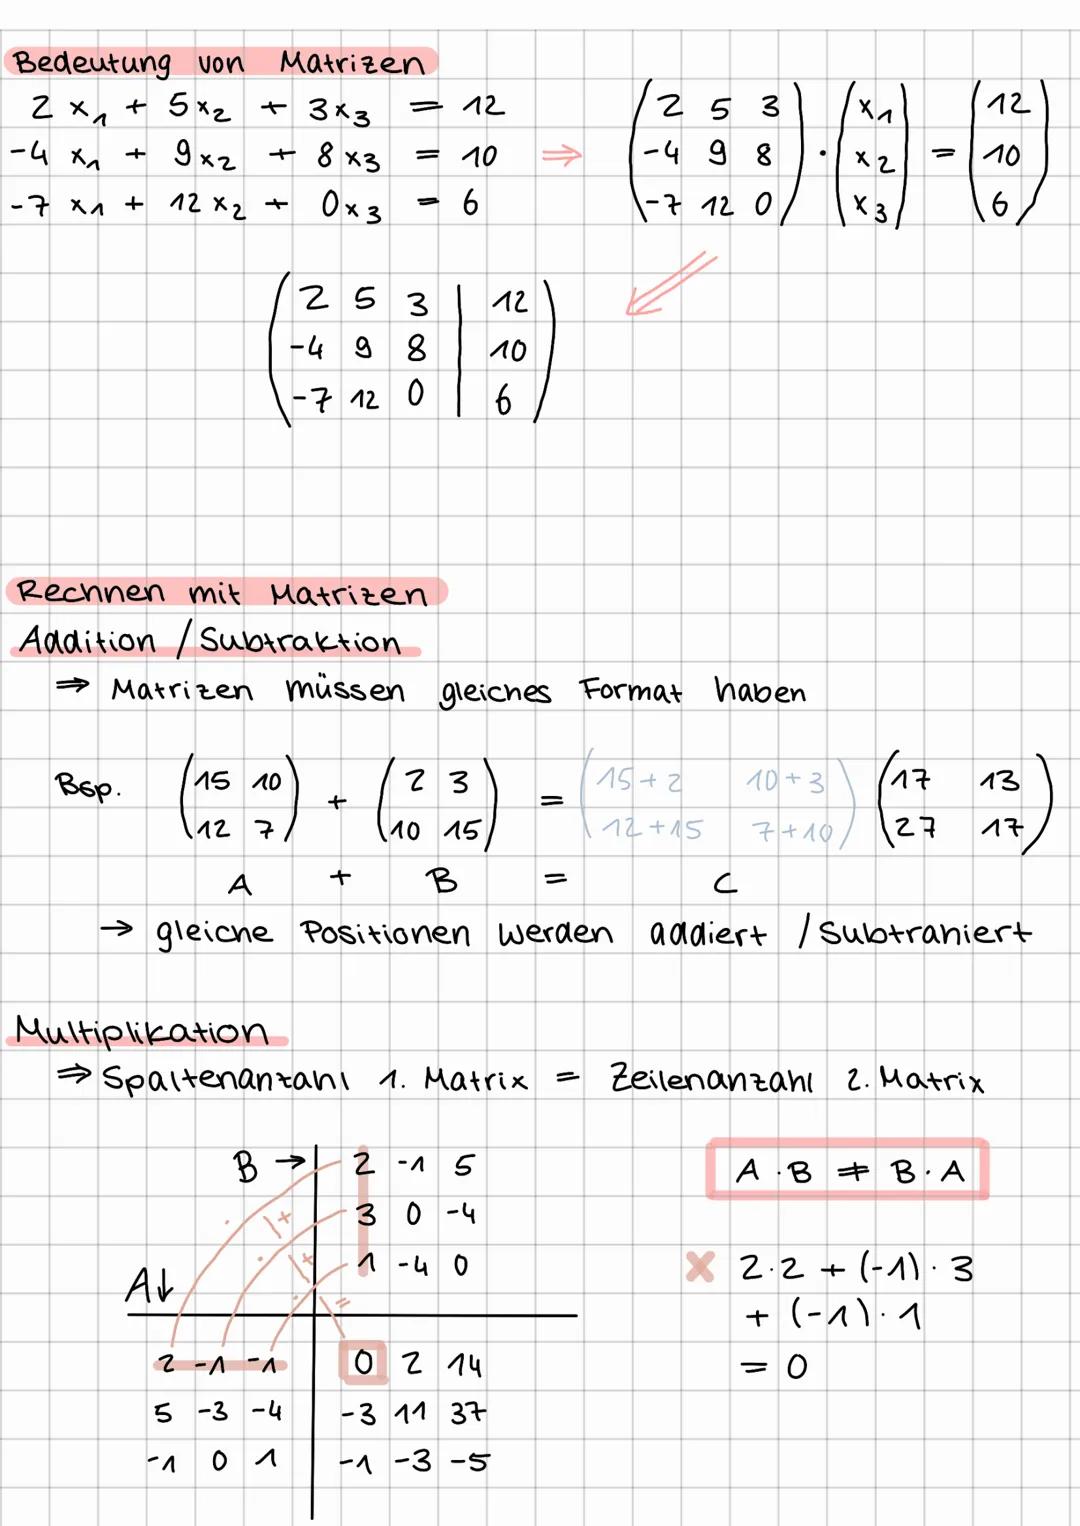 Bedeutung von Matrizen
2 x₁ + 5x₂ + 3x₃ = 12
-4 x₁ + 9x₂ + 8x₃ = 10
-7 x₁ + 12x₂ + 0x₃ = 6
⇒
( 2 5 3 ) ( x₁ ) ( 12 )
( -4 9 8 ) · ( x₂ ) = ( 10 )
( -7 12 0 ) ( x₃ ) ( 6 )
( 2 5 3 | 12 )
( -4 9 8 | 10 )
( -7 12 0 | 6 )
Rechnen mit Matrizen
Addition / Subtraktion
⇒ Matrizen müssen gleiches Format haben
Bsp. ( 15 10 ) + ( 2 3 ) = ( 15+2 10+3 ) ( 17 13 )
( 12 7 ) ( 10 15 ) ( 12+15 7+10 ) ( 27 17 )
A + B = C
→ gleiche Positionen werden addiert / subtrahiert
Multiplikation
⇒ Spaltenanzahl 1. Matrix = Zeilenanzahl 2. Matrix
B → | 2 -1 5
3 0 -4
1 -4 0
A↓
· + · + · =
2 -1 -1 | 0 2 14
5 -3 -4 | -3 11 37
-1 0 1 | -1 -3 -5
A · B ≠ B · A
x 2·2 + (-1)·3
+ (-1)·1
= 0